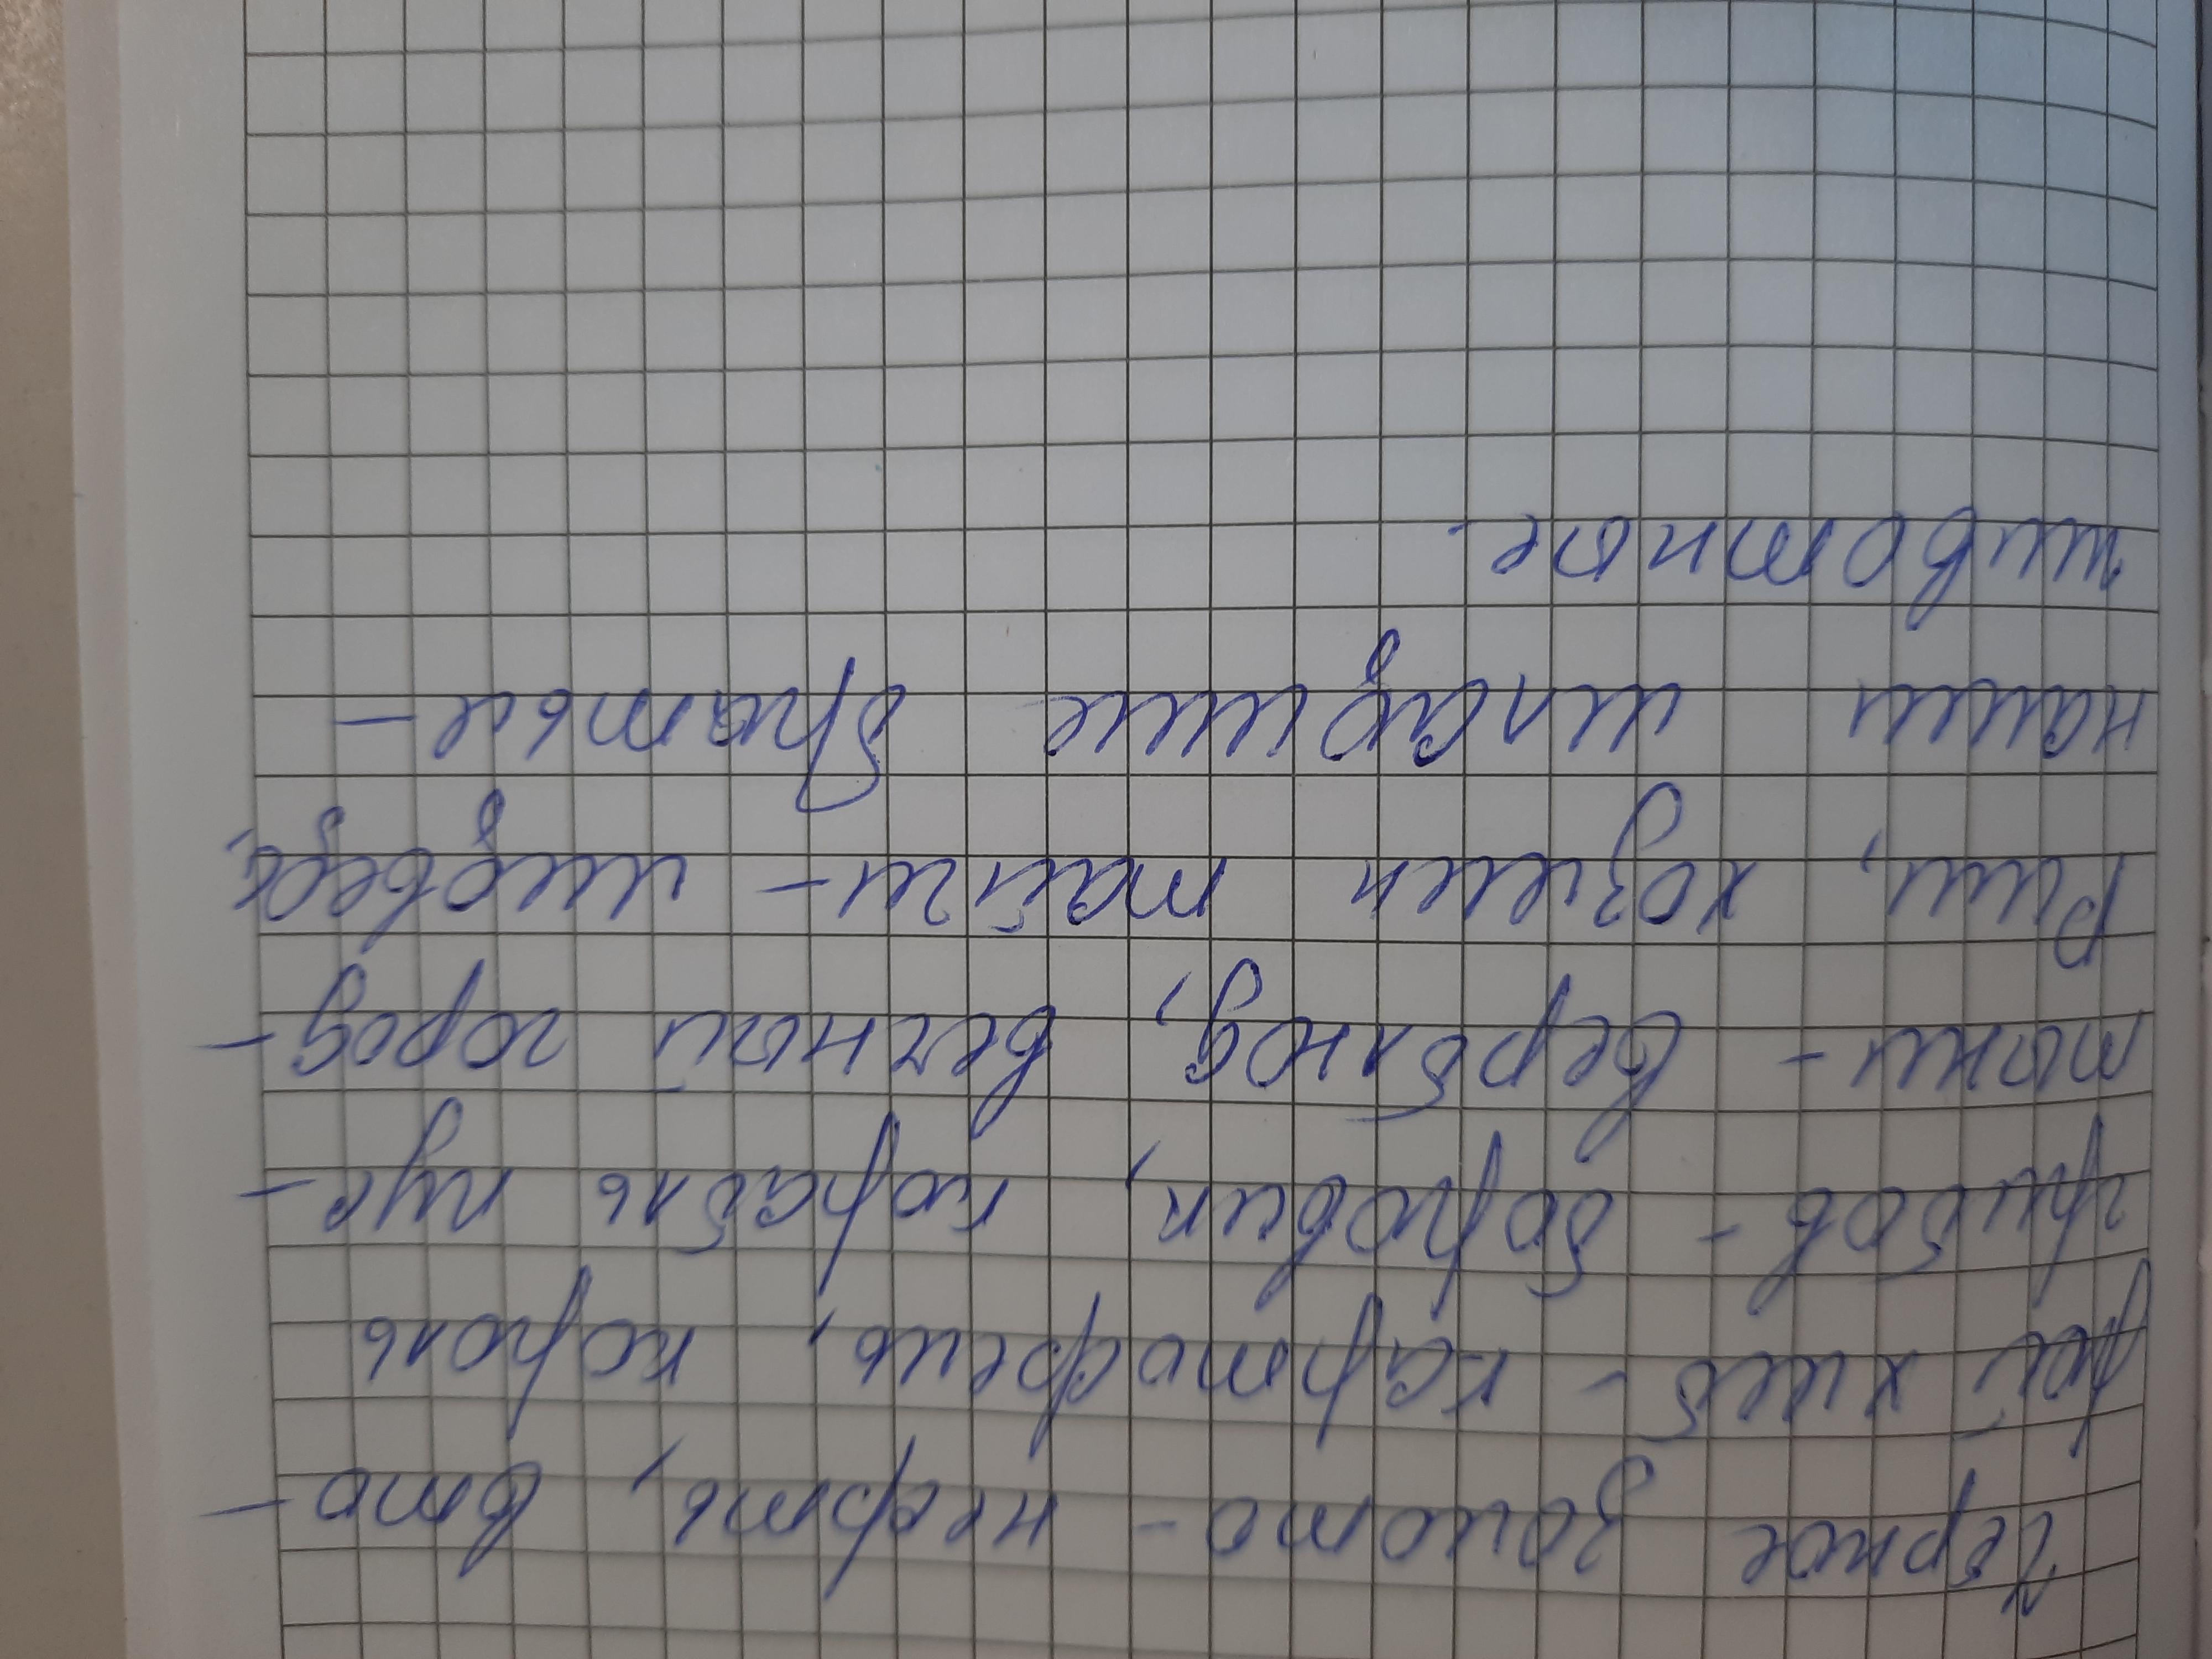 Чёрное золото - нефть, вто-
рой хлеб - картофель, король
грибов - боровик, корабль пус-
тыни - верблюд, вечный город -
Рим, хозяин тайги - медведь,
наши младшие братья -
животные.